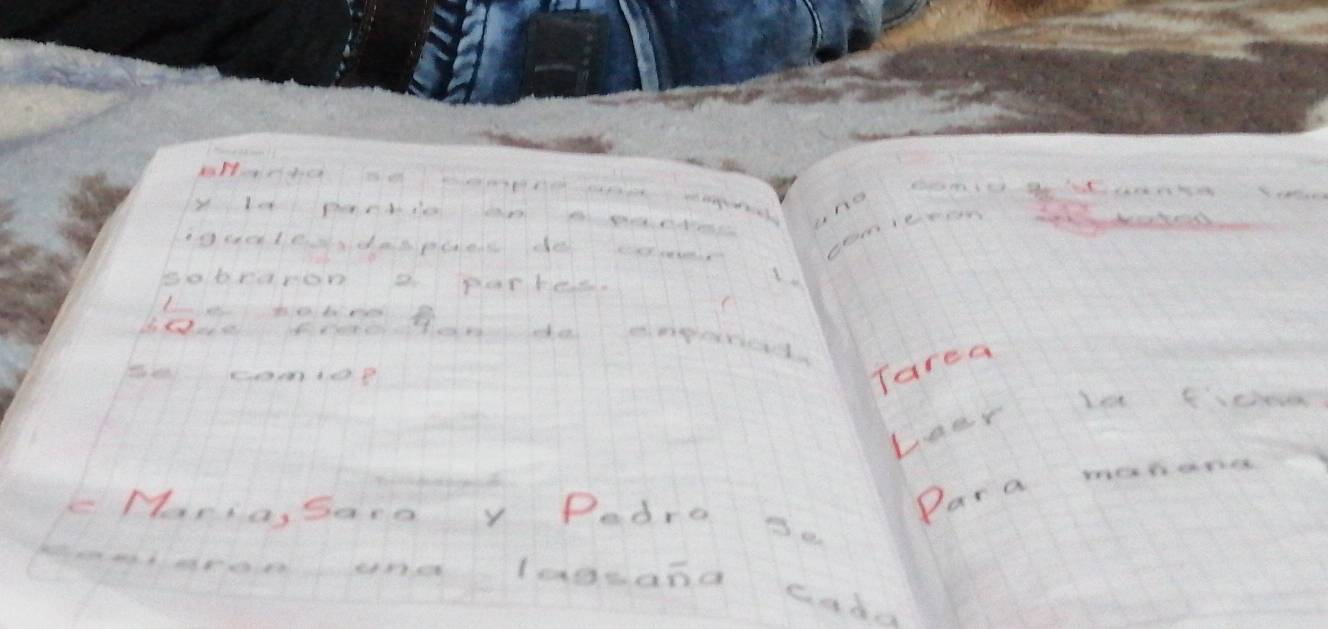 Marta se compro una
y la partio en partes
iguales, despues de comer
sobraron 2 partes.
Le sobro
Que fraccion de empanada
se comio?
c Maria, Sara y Pedro se
comieron una lagsaña cada
uno comio
comieron total
Tarea
Leer la ficha
Para mañana